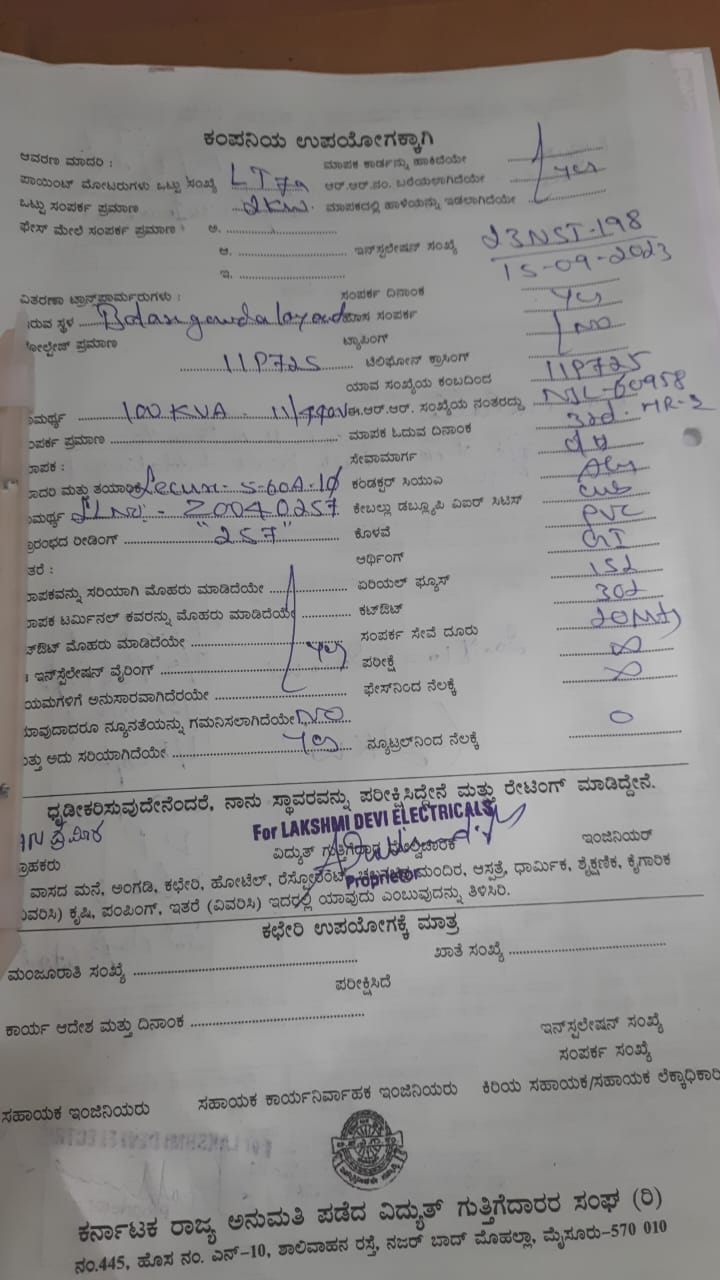 ಕಂಪನಿಯ ಉಪಯೋಗಕ್ಕಾಗಿ
ಆವರಣ ಮಾದರಿ : ಮಾಪಕ ಕಾರ್ಡನ್ನು ಹಾಕಿದೆಯೇ
ಪಾಯಿಂಟ್ ಮೋಟರುಗಳು ಒಟ್ಟು ಸಂಖ್ಯೆ LT7a ಆರ್.ಆರ್.ನಂ. ಬರೆಯಲಾಗಿದೆಯೇ yes
ಒಟ್ಟು ಸಂಪರ್ಕ ಪ್ರಮಾಣ 2KW ಮಾಪಕದಲ್ಲಿ ಹಾಳೆಯನ್ನು ಇಡಲಾಗಿದೆಯೇ
ಫೇಸ್ ಮೇಲೆ ಸಂಪರ್ಕ ಪ್ರಮಾಣ : ಅ.
ಆ. ಇನ್‌ಸ್ಟಲೇಷನ್ ಸಂಖ್ಯೆ 23NST-198
ಇ. 15-09-2023
ವಿತರಣಾ ಟ್ರಾನ್ಸ್‌ಫಾರ್ಮರುಗಳು : ಸಂಪರ್ಕ ದಿನಾಂಕ
ಇರುವ ಸ್ಥಳ ಸಂಪರ್ಕ yes
ವೋಲ್ಟೇಜ್ ಪ್ರಮಾಣ ಟ್ಯಾಪಿಂಗ್ NO
11P725 ಟೆಲಿಫೋನ್ ಕ್ರಾಸಿಂಗ್
ಯಾವ ಸಂಖ್ಯೆಯ ಕಂಬದಿಂದ 11P725
ಸಾಮರ್ಥ್ಯ 100KVA ಈ.ಆರ್.ಆರ್. ಸಂಖ್ಯೆಯ ನಂತರದ್ದು NJL-60958
ಸಂಪರ್ಕ ಪ್ರಮಾಣ ಮಾಪಕ ಓದುವ ದಿನಾಂಕ 3rd. MR-2
ಮಾಪಕ : ಸೇವಾಮಾರ್ಗ
ಮಾದರಿ ಮತ್ತು ತಯಾರಿಕೆ ಕಂಡಕ್ಟರ್ ಸಿಯುವಿ
ಸಾಮರ್ಥ್ಯ SLNO - Z0040257 ಕೇಬಲ್ಲು ಡಬ್ಲ್ಯೂಪಿ ವಿಐರ್ ಸಿಟಿಸ್
ಪ್ರಾರಂಭದ ರೀಡಿಂಗ್ "257" ಕೊಳವೆ PVC
ಇತರೆ : ಆರ್ಥಿಂಗ್ GI
ಮಾಪಕವನ್ನು ಸರಿಯಾಗಿ ಮೊಹರು ಮಾಡಿದೆಯೇ ಏರಿಯಲ್ ಫ್ಯೂಸ್ 152
ಮಾಪಕ ಟರ್ಮಿನಲ್ ಕವರನ್ನು ಮೊಹರು ಮಾಡಿದೆಯೇ ಕಟ್‌ಔಟ್ 302
ಕಟ್‌ಔಟ್ ಮೊಹರು ಮಾಡಿದೆಯೇ yes ಸಂಪರ್ಕ ಸೇವೆ ದೂರು 20Mts
ಇನ್‌ಸ್ಟೆಲೇಷನ್ ವೈರಿಂಗ್ ಪರೀಕ್ಷೆ ∞
ನಿಯಮಗಳಿಗೆ ಅನುಸಾರವಾಗಿದೆರಯೇ ಫೇಸ್‌ನಿಂದ ನೆಲಕ್ಕೆ ∞
ಯಾವುದಾದರೂ ನ್ಯೂನತೆಯನ್ನು ಗಮನಿಸಲಾಗಿದೆಯೇ NO
ಮತ್ತು ಅದು ಸರಿಯಾಗಿದೆಯೇ yes ನ್ಯೂಟ್ರಲ್‌ನಿಂದ ನೆಲಕ್ಕೆ 0
ಧೃಡೀಕರಿಸುವುದೇನೆಂದರೆ, ನಾನು ಸ್ಥಾವರವನ್ನು ಪರೀಕ್ಷಿಸಿದ್ದೇನೆ ಮತ್ತು ರೇಟಿಂಗ್ ಮಾಡಿದ್ದೇನೆ.
For LAKSHMI DEVI ELECTRICALS
ಗ್ರಾಹಕರು ವಿದ್ಯುತ್ ಗುತ್ತಿಗೆದಾರ ಮೇಲ್ವಿಚಾರಕ ಇಂಜಿನಿಯರ್
Proprietor
ವಾಸದ ಮನೆ, ಅಂಗಡಿ, ಕಛೇರಿ, ಹೋಟೆಲ್, ರೆಸ್ಟೋರೆಂಟ್, ಮಂದಿರ, ಆಸ್ಪತ್ರೆ, ಧಾರ್ಮಿಕ, ಶೈಕ್ಷಣಿಕ, ಕೈಗಾರಿಕ
(ವಿವರಿಸಿ) ಕೃಷಿ, ಪಂಪಿಂಗ್, ಇತರೆ (ವಿವರಿಸಿ) ಇದರಲ್ಲಿ ಯಾವುದು ಎಂಬುವುದನ್ನು ತಿಳಿಸಿರಿ.
ಕಛೇರಿ ಉಪಯೋಗಕ್ಕೆ ಮಾತ್ರ
ಮಂಜೂರಾತಿ ಸಂಖ್ಯೆ ಖಾತೆ ಸಂಖ್ಯೆ
ಪರೀಕ್ಷಿಸಿದೆ
ಕಾರ್ಯ ಆದೇಶ ಮತ್ತು ದಿನಾಂಕ ಇನ್‌ಸ್ಟಲೇಷನ್ ಸಂಖ್ಯೆ
ಸಂಪರ್ಕ ಸಂಖ್ಯೆ
ಸಹಾಯಕ ಇಂಜಿನಿಯರು ಸಹಾಯಕ ಕಾರ್ಯನಿರ್ವಾಹಕ ಇಂಜಿನಿಯರು ಕಿರಿಯ ಸಹಾಯಕ/ಸಹಾಯಕ ಲೆಕ್ಕಾಧಿಕಾರಿ
ಕರ್ನಾಟಕ ರಾಜ್ಯ ಅನುಮತಿ ಪಡೆದ ವಿದ್ಯುತ್ ಗುತ್ತಿಗೆದಾರರ ಸಂಘ (ರಿ)
ನಂ.445, ಹೊಸ ನಂ. ಎನ್-10, ಶಾಲಿವಾಹನ ರಸ್ತೆ, ನಜರ್ ಬಾದ್ ಮೊಹಲ್ಲಾ, ಮೈಸೂರು-570 010